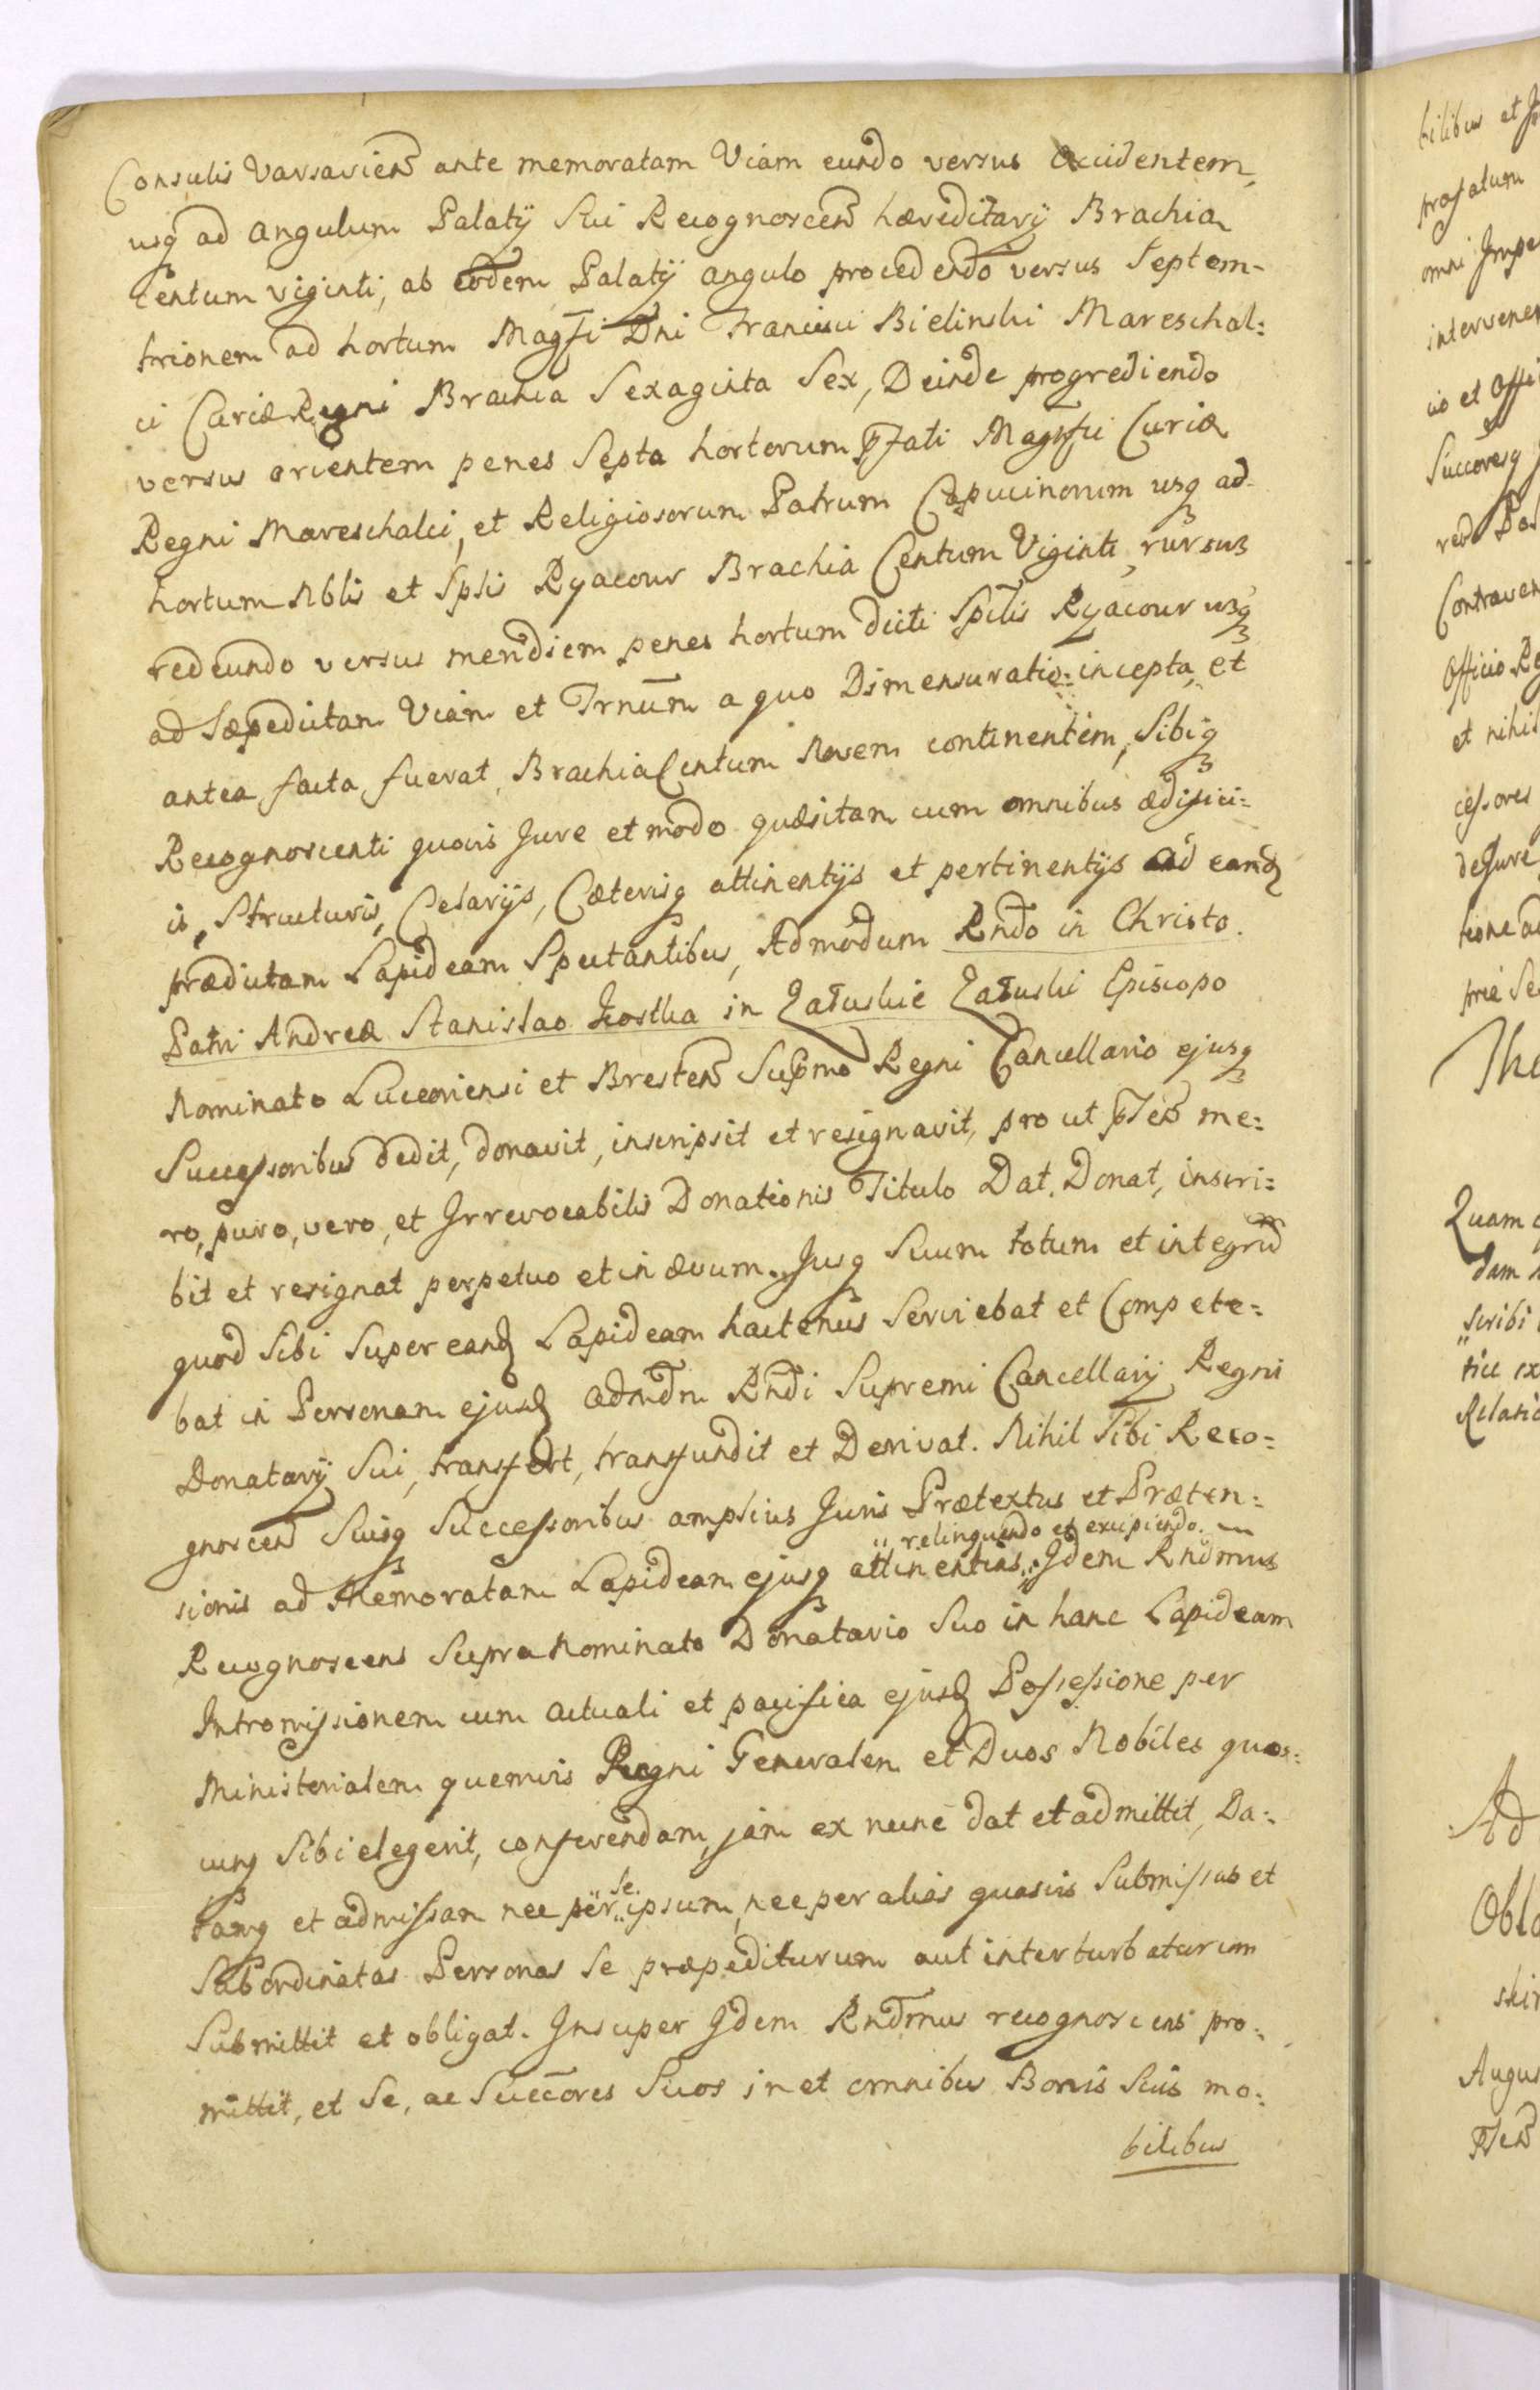 Consulis Varsavien̄ ante memoratam Viam eundo versus Occidentem,
usq̨ ad angulum Palatÿ Sui Recognoscen̄ hæreditarÿ Brachia
Centum viginti, ab eodem Palatÿ angulo procedendo versus Septem-
trionem ad hortum Magfi Dni Francisci Bielinski Mareschal:
ci Curiæ Regni Brachia Sexaginta Sex, Deinde progrediendo
versus orientem penes Septa hortorum pfati Magfici Curiæ
Regni Mareschalci, et Religiosorum Patrum Capucinorum usq̨ ad
hortum Nblis et Splis Ryacour Brachia Centum Viginti, rursus
redeundo versus meridiem penes hortum dicti Splis Ryacour usq̨
ad Sæpedictam Viam et Trnum a quo Dimensuratio incepta, et
antea facta fuerat, Brachia Centum Novem continentem, Sibiq̨
Recognoscenti quovis Jure et modo quæsitam cum omnibus ædifici:
is, Structuris, Celarÿs, Cæterisq̨ attinentÿs et pertinentÿs ad eand
prædictam Lapideam Spectantibus, Admodum Rndo in Christo
Patri Andreæ Stanislao Kostka in Załuskie Załuski Episcopo
Nominato Luceoriensi et Bresten̄ Supmo Regni Cancellario ejusq̨
Successoribus dedit, donavit, inscripsit et resignavit, pro ut pten̄ me:
ro, puro, vero, et Irrevocabilis Donationis Titulo Dat. Donat, inscri:
bit et resignat perpetuo et in ævum. Jusq̨ Suum totum et integrũ
quod Sibi Super eand Lapideam hactenus Serviebat et Compete:
bat in Personam ejusd admdm Rndi Supremi Cancellarÿ Regni
Donatarÿ Sui, transfert, transfundit et Derivat. Nihil Sibi Reco:
gnoscen̄ Suisq̨ Successoribus amplius Juris Prætextus et Præten:
" relinquendo et excipiendo.
sionis ad Memoratam Lapideam ejusq̨ attinentias " Idem Rndmus
Recognoscens Supra Nominato Donatario Suo in hanc Lapideam
Intromissionem cum actuali et pacifica ejusd Possessione per
Ministerialem quemvis Regni Generalem et Duos Nobiles quos:
cunq̨ Sibi elegerit, conferendam, jam ex nunc dat et admittit, Da:
se
tamq̨ et admissam nec per " ipsum, nec per alias quasvis Submissas et
Subordinatas Personas Se præpediturum aut interturbaturum
Submittit et obligat. Insuper Idem Rndmus recognoscens pro:
mittit, et Se, ac Succōres Suos in et omnibus Bonis Suis mo:
bilibus
bilibus et
præfatum
omni Impe
intervenen
io et Offi
Succōresq̨
Contraven
Officio Re
et nihil
cessores
de Jure
tione ad
Tho
Quam
dam
scribi
Relatio
Ad
Obla
skin
Augus